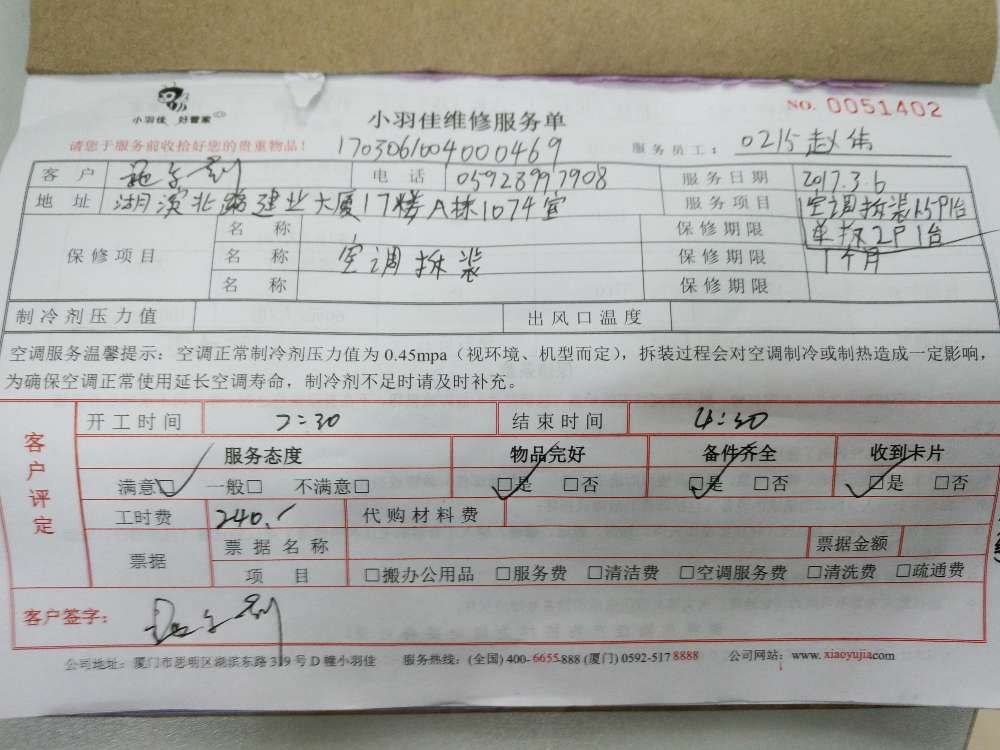 小羽佳 好管家
小羽佳维修服务单
NO. 0051402
请您于服务前收拾好您的贵重物品！
170306004000469
服务员工： 0215 赵伟
客户 电话 05928997908 服务日期 2017.3.6
地址 湖滨北路建业大厦17楼A栋1074室 服务项目 空调拆装1.5P1台
单拆2P1台
保修项目 名称 保修期限
名称 空调拆装 保修期限 1个月
名称 保修期限
制冷剂压力值 出风口温度
空调服务温馨提示：空调正常制冷剂压力值为 0.45mpa（视环境、机型而定），拆装过程会对空调制冷或制热造成一定影响，
为确保空调正常使用延长空调寿命，制冷剂不足时请及时补充。
客户评定
开工时间 2:30 结束时间 4:30
服务态度 物品完好 备件齐全 收到卡片
满意□ 一般□ 不满意□ □是 □否 □是 □否 □是 □否
工时费 240.- 代购材料费
票据 票据名称 票据金额
项目 □搬办公用品 □服务费 □清洁费 □空调服务费 □清洗费 □疏通费
客户签字：
公司地址：厦门市思明区湖滨东路319号D幢小羽佳 服务热线：(全国) 400-6655-888 (厦门) 0592-517 8888 公司网站：www. xiaoyujia.com